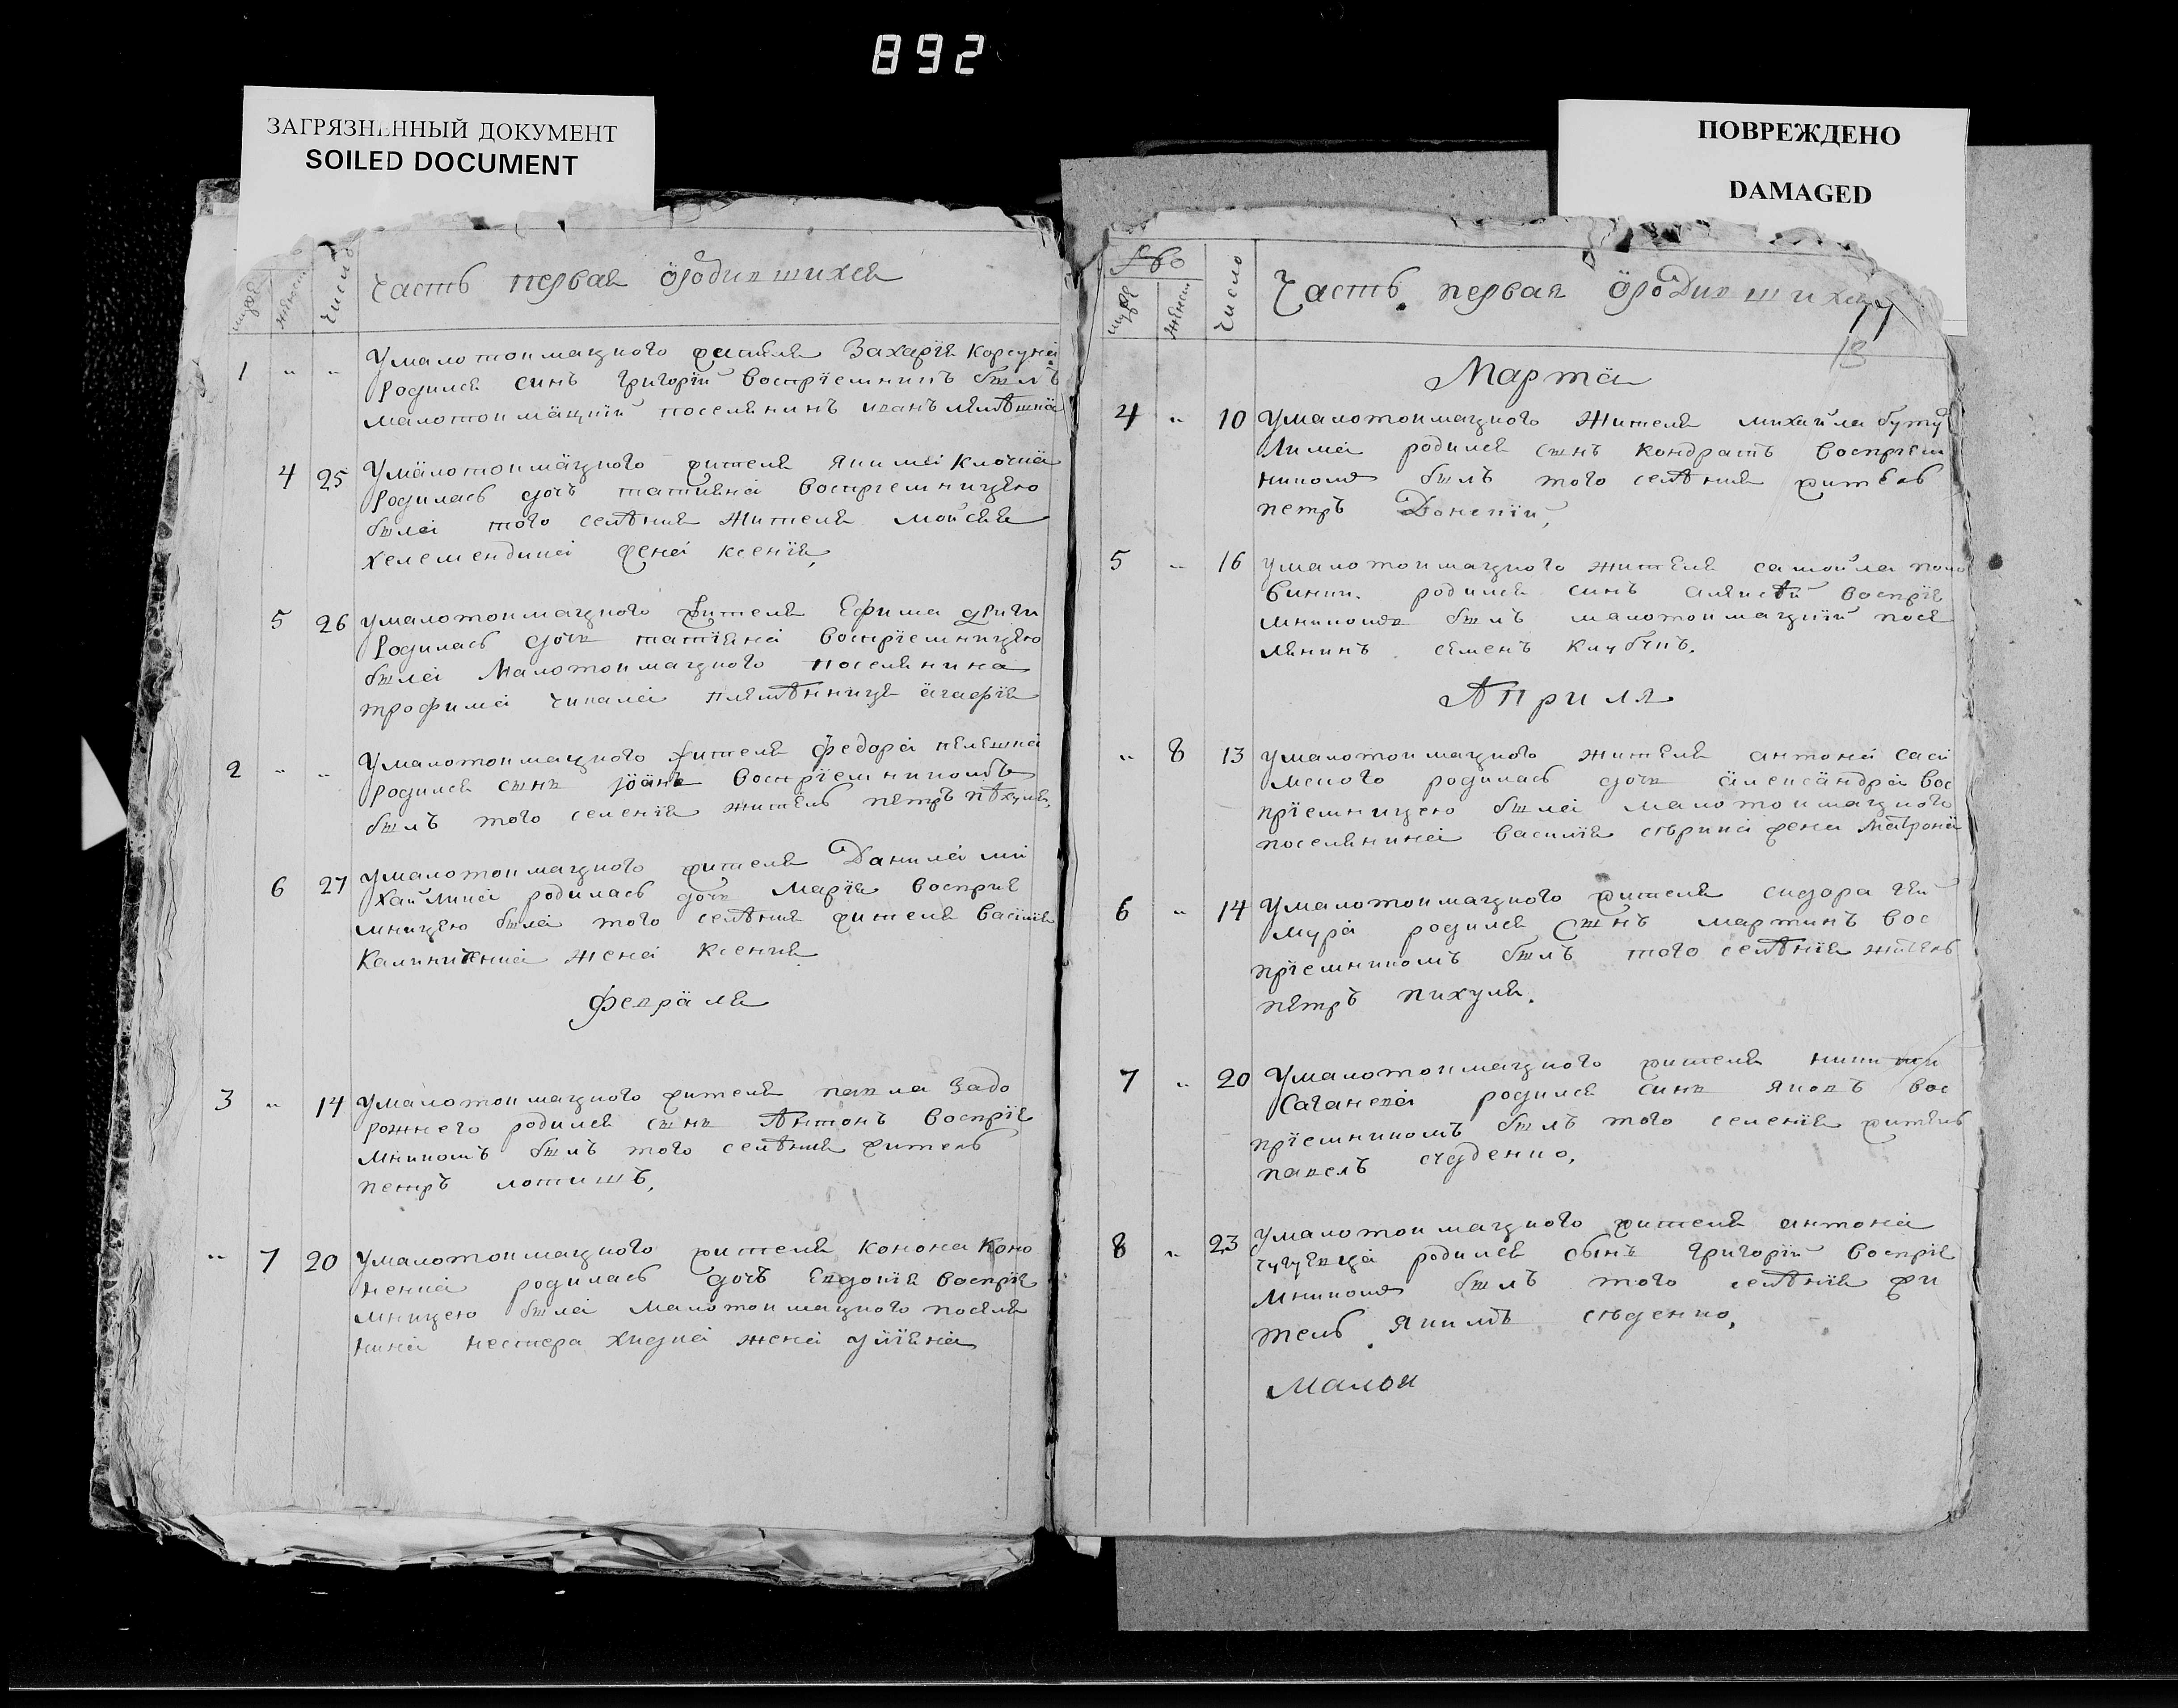 892
ЗАГРЯЗНЕННЫЙ ДОКУМЕНТ
SOILED DOCUMENT
ПОВРЕЖДЕНО
DAMAGED
число
Часть первая ӧродившихся
1 " " Умалотокмацкого жителя Захарїя Корсуна
родился синъ Григорїй воспрїемникъ былъ
малотокмацкїй поселянинъ иванъ
4 25 Умалотокмацкого жителя якима Клочка
родилась дочь татияна воспрїемницею
была того селѣния жителя мойсея
хелемендика жена ксенїя,
5 26 умалотокмацкого жителя Ефима
родилась дочь татїяна воспрїемницею
была Малотокмацкого поселянина
трофима чикала племѣнница агафїя
2 " " Умалотокмацкого жителя федора пелешка
родился сынъ їоанъ воспрїемникомъ
былъ того селенїя житель петръ пѣхуля,
6 27 умалотокмацкого жителя Данила ми
хайлика родилась дочь Марїя восприе
мницею была того селѣния жителя василїя
Калиниченка жена ксения
февраля
3 " 14 умалотокмацкого жителя павла Задо
рожнего родился сынъ Антонъ воспрїе
мникомъ былъ того селѣния житель
петръ лотишъ,
" 7 20 умалотокмацкого жителя конона коно
ненка родилась дочъ Евдокїя воспрїе
мницею была малотокмацкого поселя
нина нестера хидиа жена улїяна
число
Часть первая ӧродившихся
Марта
4 " 10 Умалотокмацкого жителя михайла буту
лима родился сынъ кондратъ воспрїем
никомъ былъ того селѣния житель
петръ Донскїй,
5 " 16 умалотокмацкого жителя самойла поло
винки. родился синъ алексѣй воспрїе
мникомъ былъ малотокмацкїй посе
лянинъ семенъ клубчиъ.
Априля
" 8 13 умалотокмацкого жителя антона саси
мского родилась дочь александра вос
прїемницею была малотокмацкого
поселянина василїя скрипка жена матрона
6 " 14 умалотокмацкого жителя сидора гей
мура родился сынъ мартинъ вос
прїемникомъ былъ того селѣнїя житель
петръ пихуля.
7 " 20 умалотокмацкого жителя никити
саганска родился синъ яковъ вос
прїемникомъ былъ того селенїя житель
павелъ
8 " 23 умалотокмацкого жителя антона
чугуевца родился сынъ григорїй воспрїе
мникомъ былъ того селѣнїя жи
тель якимъ
малои